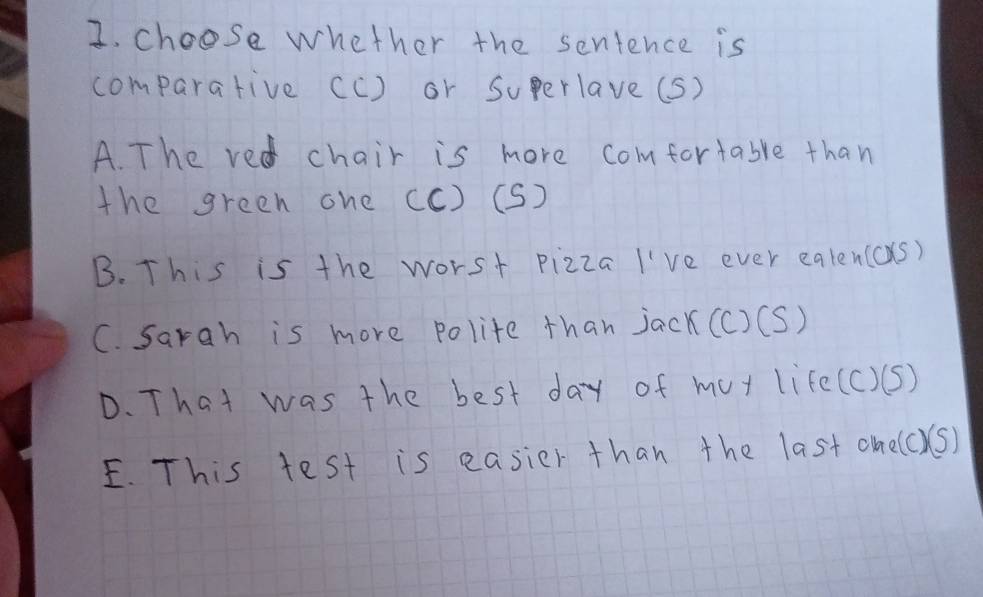 I. choose whether the sentence is
comparative (C) or Superlave (S)
A. The red chair is more comfortable than
the green one (C) (S)
B. This is the worst Pizza I've ever ealen(C)(S)
C. Sarah is more Polite than jack (C)(S)
D. That was the best day of my life(C)(S)
E. This test is easier than the last one(C)(S)